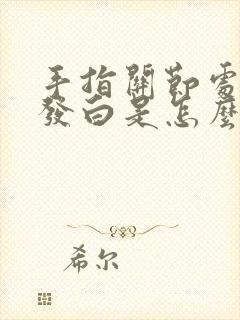 手指關節處
發白是怎麼
希尔